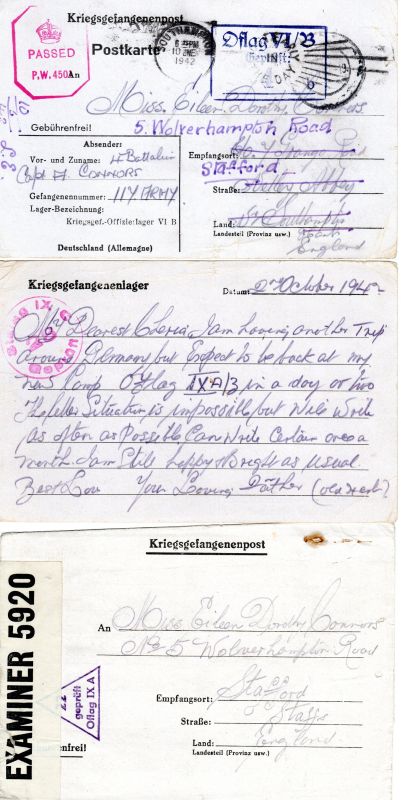 Kriegsgefangenenpost
PASSED
P.W. 450
SOUTHAMPTON
6 PM
10
1942
Oflag VI/B
Geprüft:
6
Postkarte
An
Miss. Eileen Dorothy Connors
5. Wolverhampton Road
Gebührenfrei!
Absender:
Vor- und Zuname: H Battalion
Capt A. CONNORS
Gefangenennummer: 11Y. ARMY
Lager-Bezeichnung:
Kriegsgef.-Offizierlager VI B
Deutschland (Allemagne)
Empfangsort:
Stafford
Straße: Abbey
Land:
England
Landesteil (Provinz usw.)
Kriegsgefangenenlager
Datum: 27 October 194
Stalag IX C
My Dearest I am having another Trip
around Germany but Expect to be back at my
new Camp Oflag IX A/3 in a day or two
The letter Situation is impossible, but Will Write
as often as Possible, Can Write Certain once a
month. I am Still happy & bright as usual.
Best Love Your Loving Father
Kriegsgefangenenpost
EXAMINER 5920
An
Miss Eileen Dorothy Connors
No 5 Wolverhampton Road
22
geprüft
Oflag IX A
Empfangsort: Stafford
Straße: Staffs
Land: England
Landesteil (Provinz usw.)